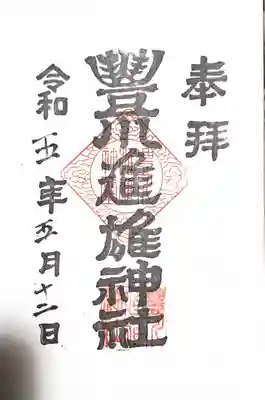 奉拝
豐川進雄神社
令和五年五月十二日